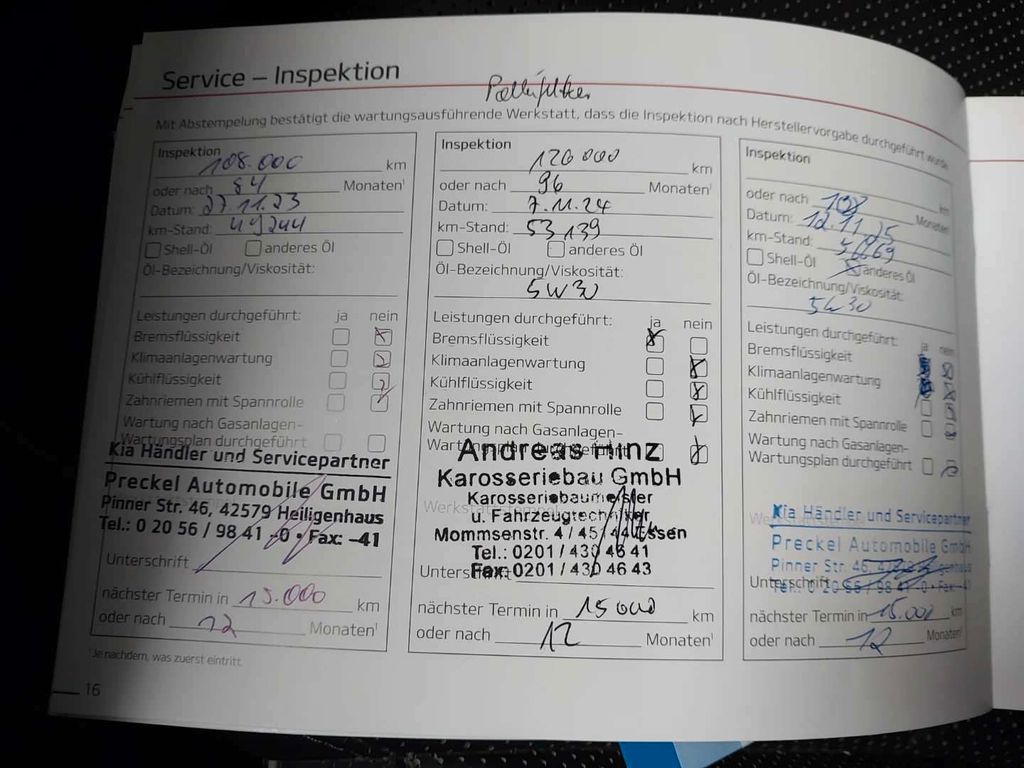 Service – Inspektion
Pollenfilter
Mit Abstempelung bestätigt die wartungsausführende Werkstatt, dass die Inspektion nach Herstellervorgabe durchgeführt wurde.
Inspektion
108.000 km
oder nach 84 Monaten¹
Datum: 27.11.23
km-Stand: 49244
Shell-Öl anderes Öl
Öl-Bezeichnung/Viskosität:
Leistungen durchgeführt: ja nein
Bremsflüssigkeit
Klimaanlagenwartung
Kühlflüssigkeit
Zahnriemen mit Spannrolle
Wartung nach Gasanlagen-
Wartungsplan durchgeführt
Kia Händler und Servicepartner
Preckel Automobile GmbH
Pinner Str. 46, 42579 Heiligenhaus
Tel.: 0 20 56 / 98 41 -0 • Fax: -41
Unterschrift
nächster Termin in 15.000 km
oder nach 12 Monaten¹
Inspektion
120000 km
oder nach 96 Monaten¹
Datum: 7.11.24
km-Stand: 53139
Shell-Öl anderes Öl
Öl-Bezeichnung/Viskosität:
5W30
Leistungen durchgeführt: ja nein
Bremsflüssigkeit
Klimaanlagenwartung
Kühlflüssigkeit
Zahnriemen mit Spannrolle
Wartung nach Gasanlagen-
Andreas Hinz
Karosseriebau GmbH
Karosseriebaumeister
u. Fahrzeugtechniker
Mommsenstr. 4 / 45144 Essen
Tel.: 0201 / 430 46 41
Fax: 0201 / 430 46 43
nächster Termin in 15000 km
oder nach 12 Monaten¹
Inspektion
km
oder nach 108 Monaten
Datum: 12.11.25
km-Stand:
Shell-Öl anderes Öl
Öl-Bezeichnung/Viskosität:
5W30
Leistungen durchgeführt: ja nein
Bremsflüssigkeit
Klimaanlagenwartung
Kühlflüssigkeit
Zahnriemen mit Spannrolle
Wartung nach Gasanlagen-
Wartungsplan durchgeführt
Kia Händler und Servicepartner
Preckel Automobile GmbH
Pinner Str. 46,
Unterschrift
nächster Termin in 15.000 km
oder nach 12 Monaten¹
¹Je nachdem, was zuerst eintritt.
16